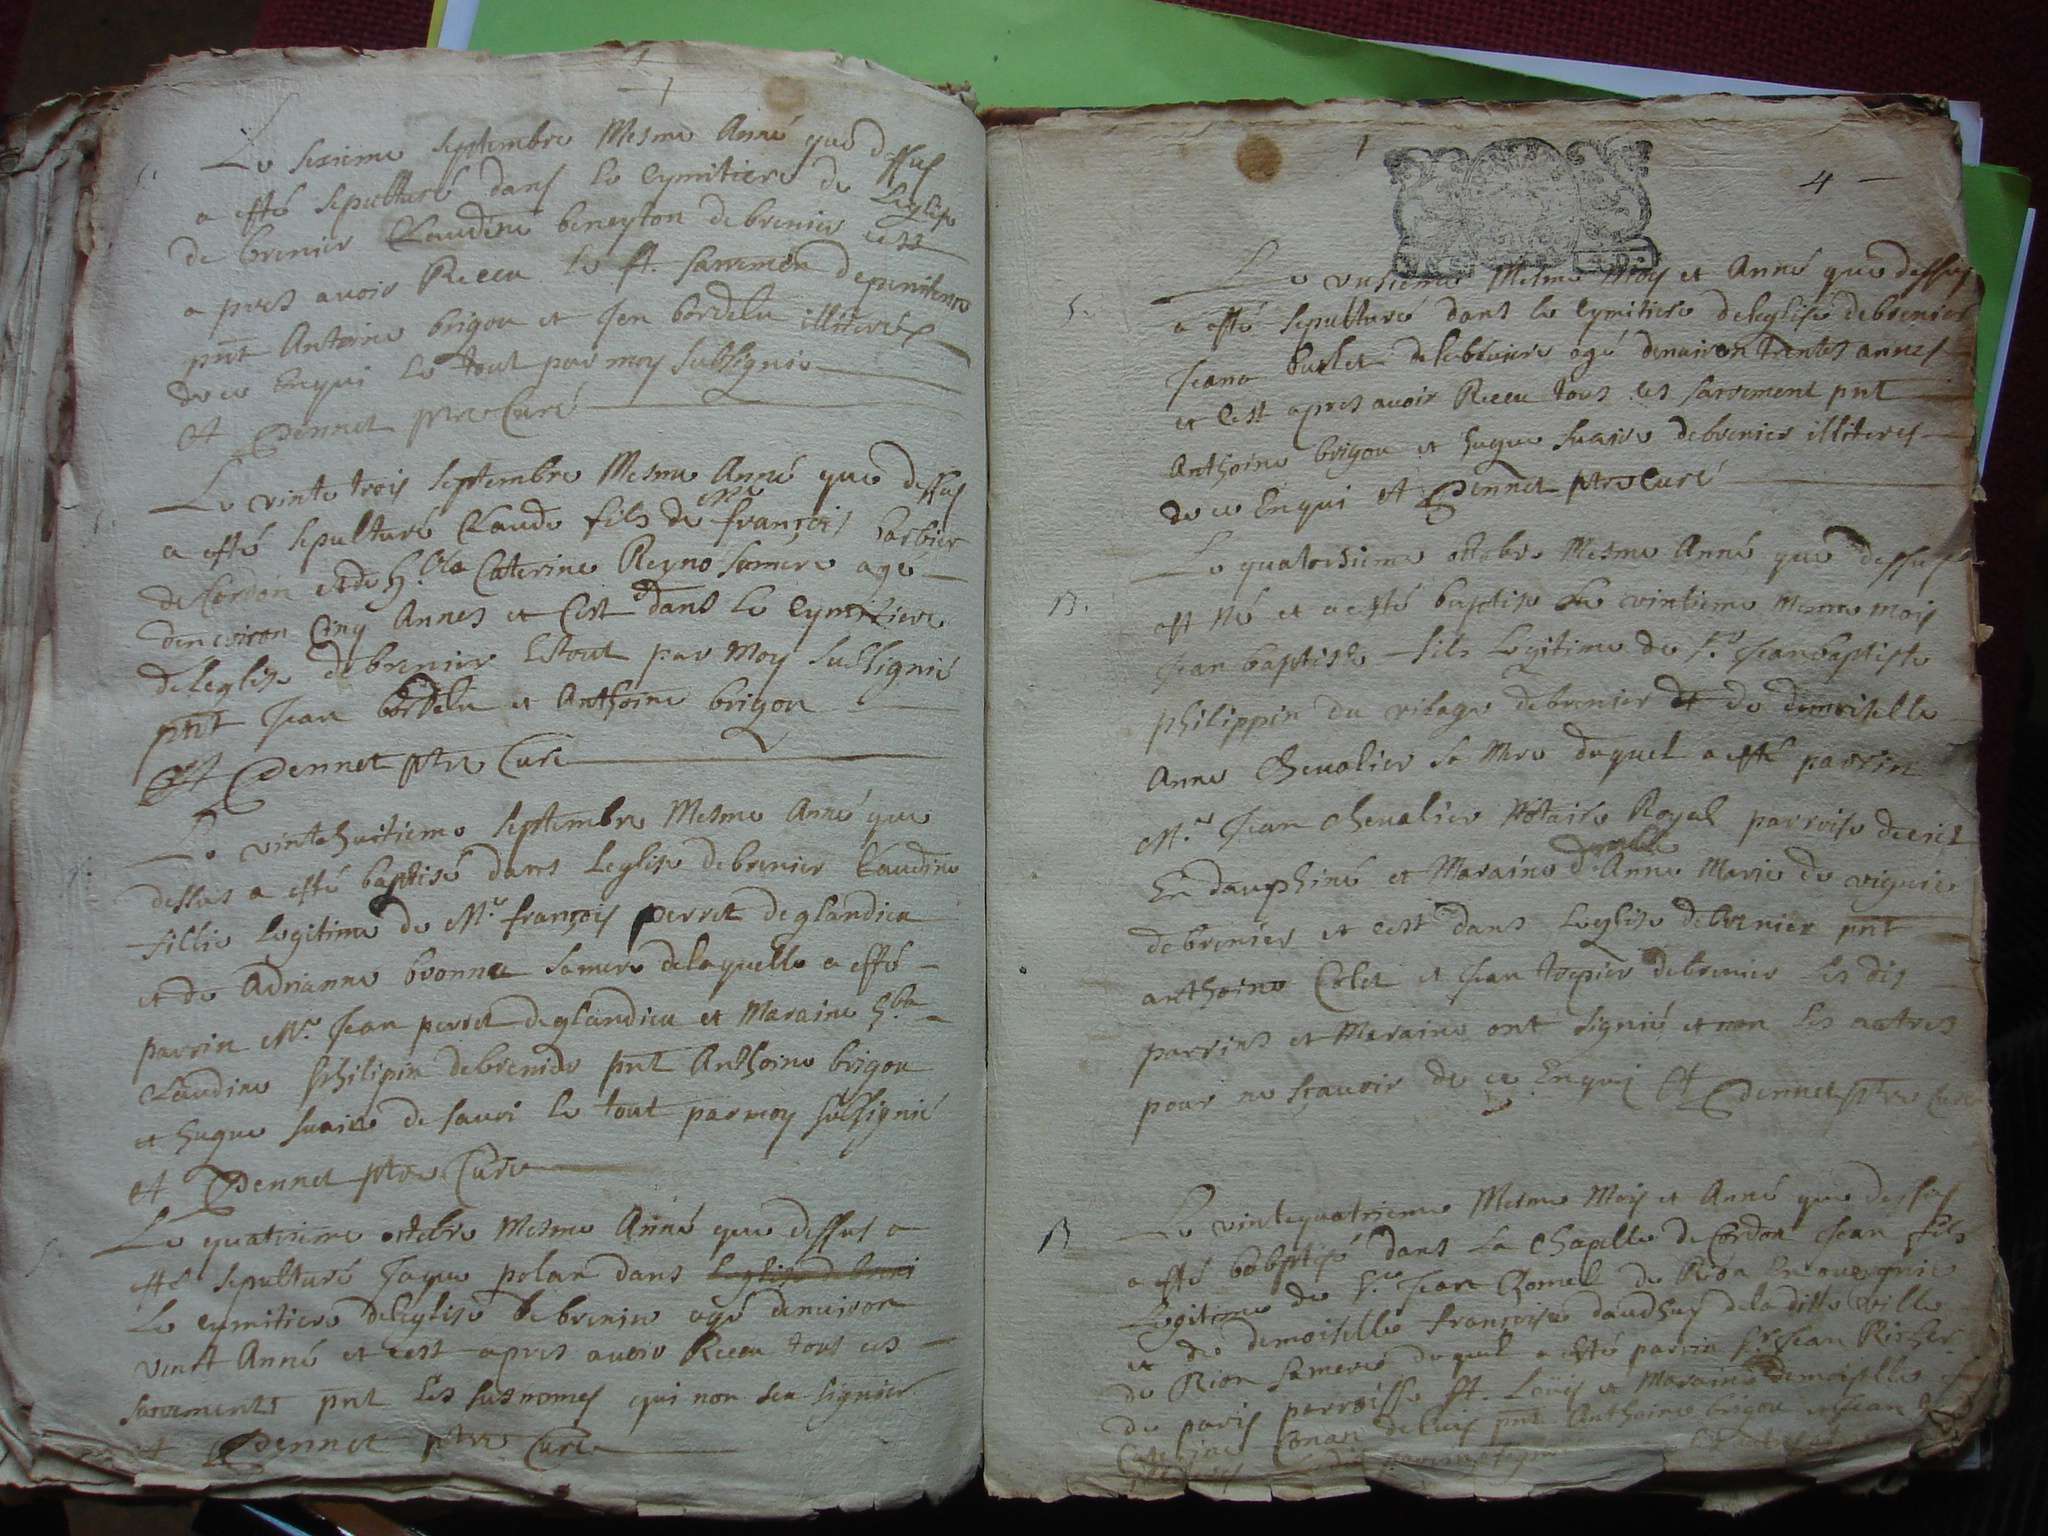 Le sixieme septembre Mesme Année que dessus
a esté sepulturé dans le Cymitiere de Leglise
de brenier Claudine beneyton de brenier cest
a pres avoir Receu le st. sacremen de penitence
pnt Antoine brigou et Jen bordelu illiterés
de ce Enqui le tout par moy subsignié
et Dennet ptre Curé
Le vinte trois septembre Mesme Année que dessus
a esté sepulturé Claude fils de françois barbier
de Cordon et de h. Caterine Reyno samere agé
denviron Cinq Annes et Cest dans le Cymitiere
de leglise de brenier Le tout par Moy subsignié
pnt Jean bordelu et Anthoine brigou
et Dennet ptre Curé
Le vintehuitieme septembre Mesme Anné que
dessus a esté baptisé dans Leglise de brenier Claudine
fillie Legitime de Mr françois perret de glandieu
et de Adrianne bvonnet samere de laquelle a esté
parrin Mr. Jean perret de glandieu et Maraine hble
Claudine philipin de brenier pnt Anthoine brigou
et hugue suaire de sauri le tout par moy subsignié
et Dennet ptre Curé
Le quatrieme octobre Mesme Anné que dessus a
esté sepulturé Jaque polan dans leglise de breni
Le Cymitiere de leglise de brenier agé denviron
vint Anné et cest apres avoir Receu tous ces
sacrements pnt Les susnomes qui non seu signier
et Dennet ptre Curé
4
Le unsieme Mesme Moys et Année que dessus
S.
a esté sepulturé dans le Cymitiere de leglise de brenier
Jeane burlet de agé denviron trentes annes
et Cest apres avoir Receu tous les sacrement pnt
Anthoine brigou et hugue suaire de brenier illiteres
de ce Enqui et Dennet ptre Curé
Le quatorsieme octobre Mesme Année que dessus
B.
est né et a esté baptise le vintieme Mesme mois
Jean baptiste fils Legitime de Sr. Jean baptiste
philippin du vilage de brenier et de demoiselle
Anne Chevalier sa Mere duquel a esté parrin
Mr. Jean Chevalier Notaire Royal parroise
En dauphiné et Maraine dmlle Anne Marie de vignie
de brenier et cest dans Leglise de brenier pnt
anthoine Colet et Jean de brenier les dis
parrins et Maraine ont signié et non les autres
pour ne sçavoir de ce Enqui et Dennet ptre Curé
B
Le vintequatrieme Mesme Mois et Année que dessus
a esté babptisé dans La Chapelle de Cordon Jean fils
Legitime de Sr Jean Chomel de Rion En auvergnie
et de demoiselle françoise de la ditte ville
de Rion samere duquel a esté parrin Sr. Jean Richer
de paris parroisse St. Loüis et Maraine demoiselle
Conan pnt Anthoine brigou et Jean